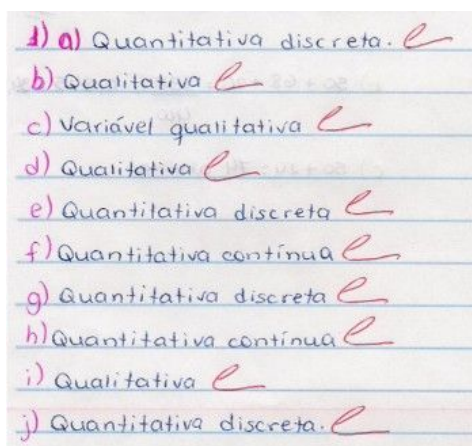 1) a) Quantitativa discreta. e
b) Qualitativa e
c) Variável qualitativa e
d) Qualitativa e
e) Quantitativa discreta e
f) Quantitativa contínua e
g) Quantitativa discreta e
h) Quantitativa contínua e
i) Qualitativa e
j) Quantitativa discreta. e